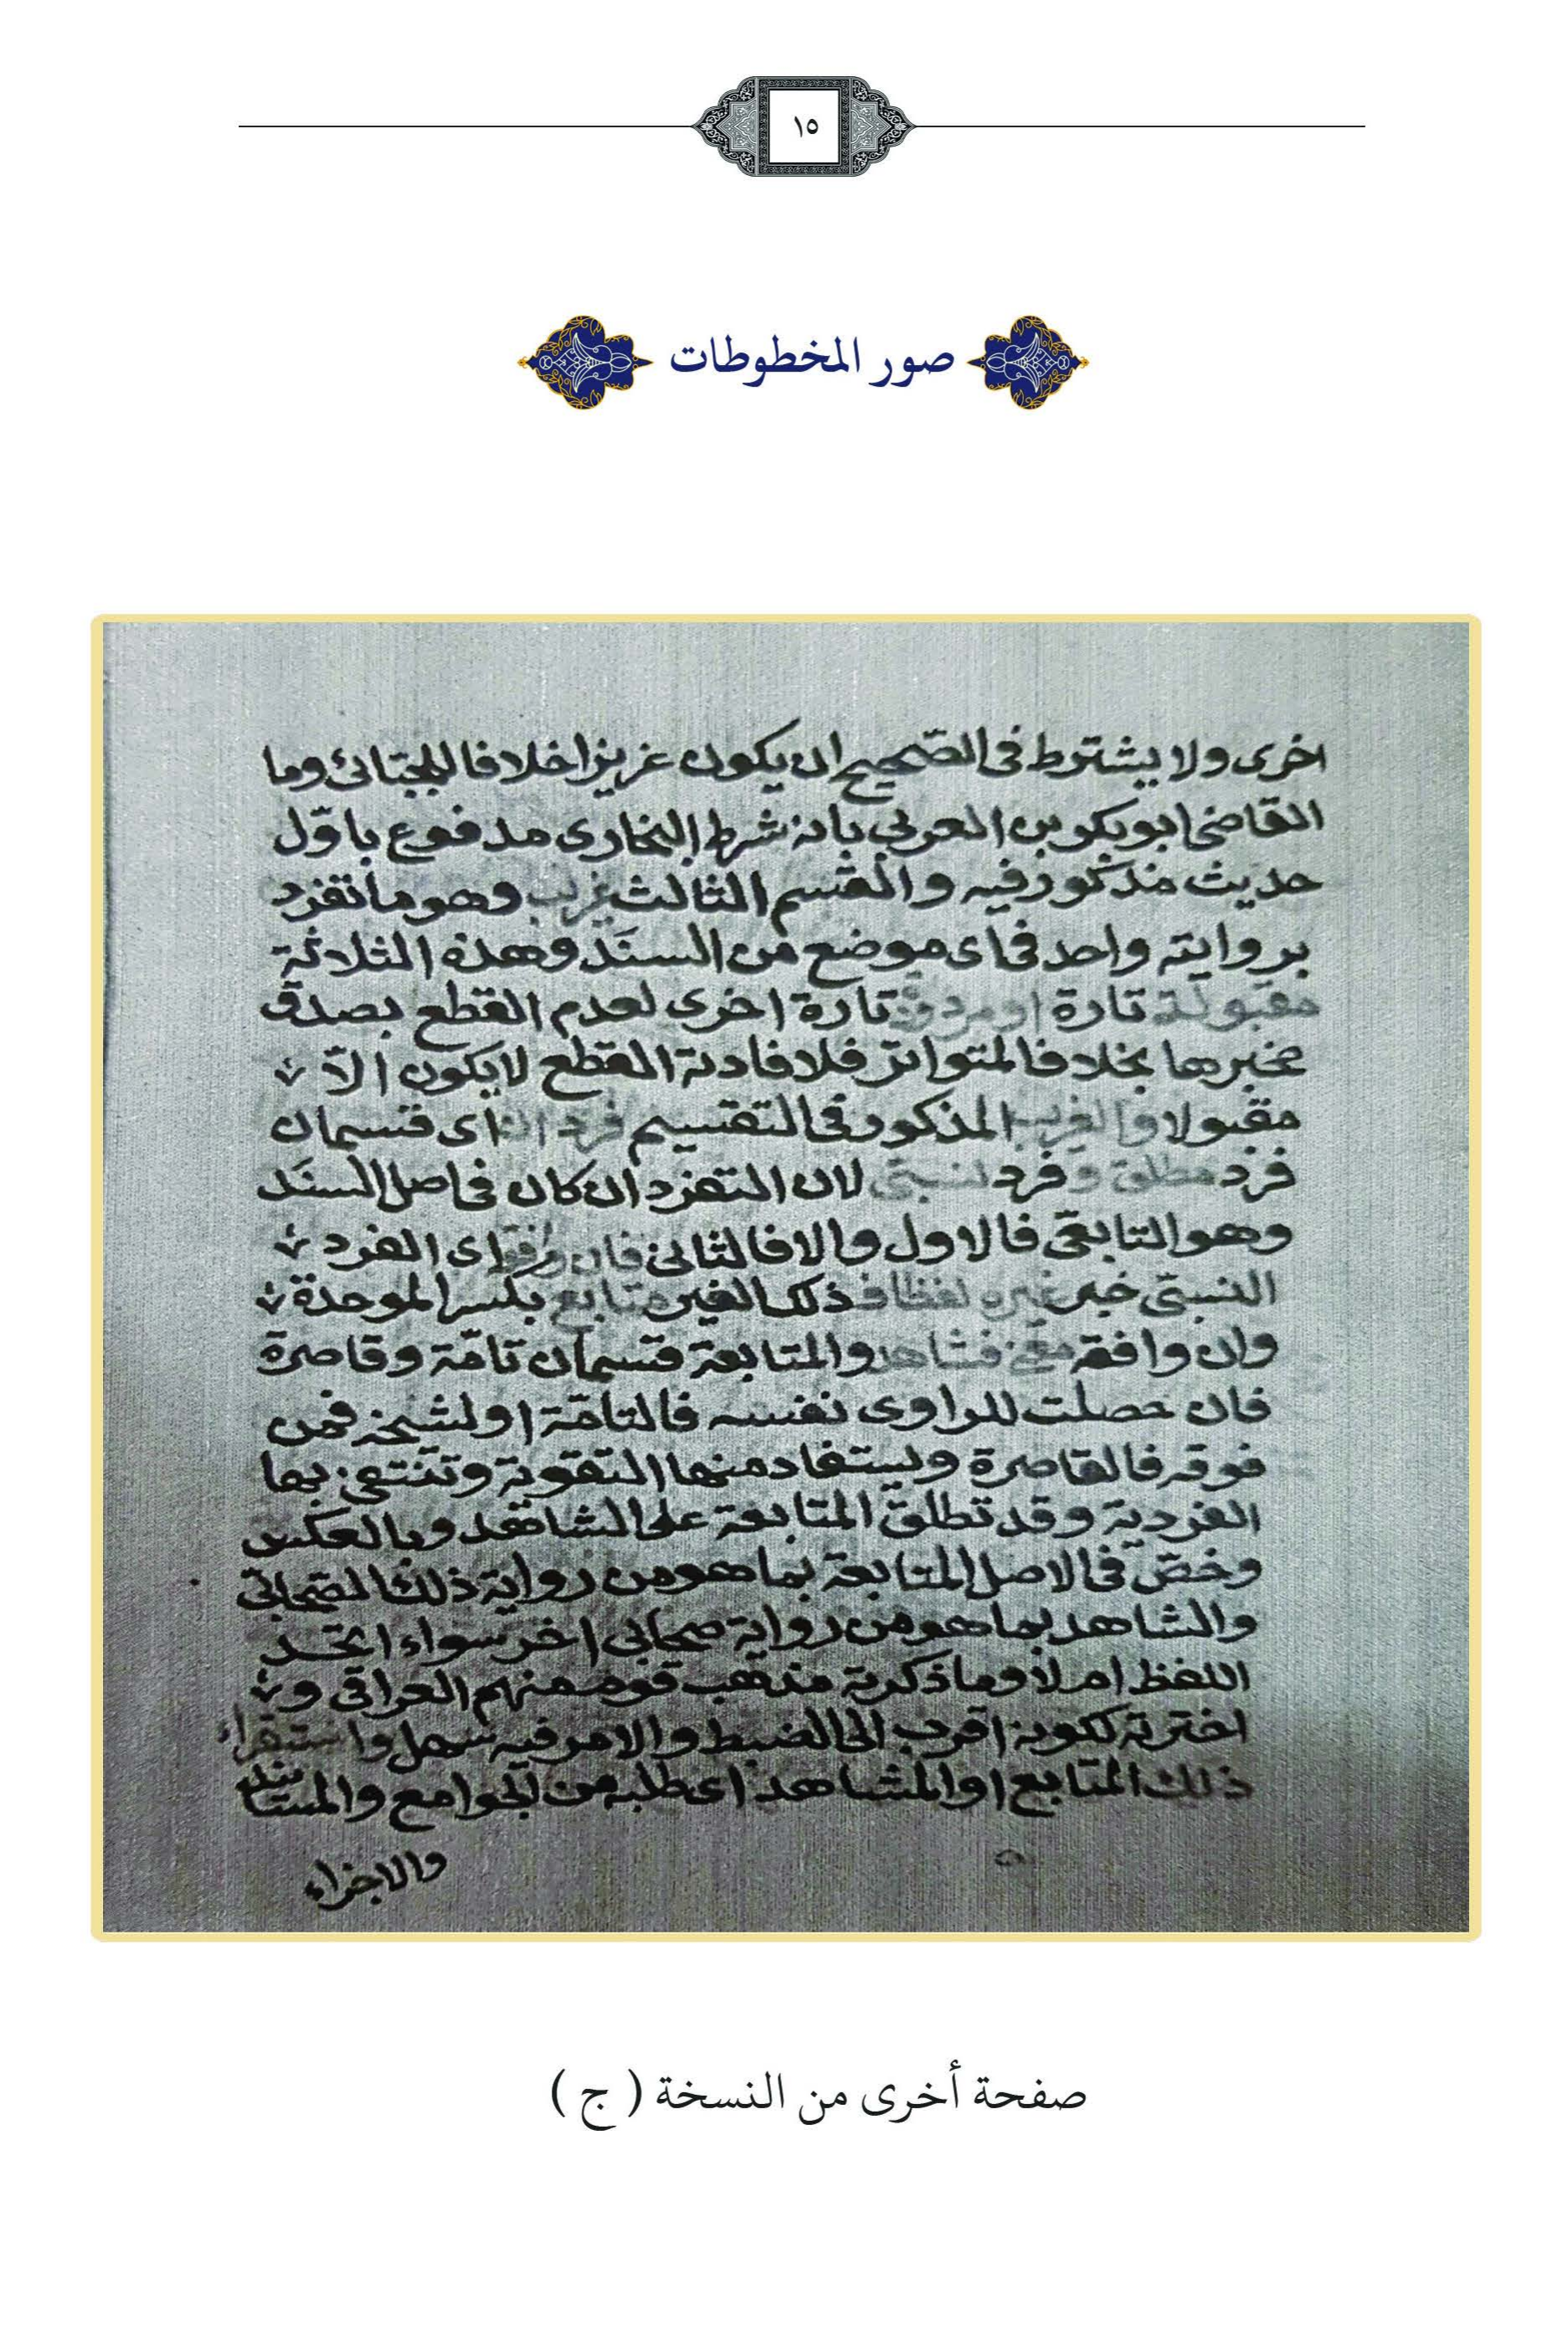 ١٥
صور المخطوطات
اخرى ولا يشترط فى الصّحيح ان يكون عزيزا خلافا للجبّائى وما
القاضى ابو بكر بن العربى بانه شرط البخارى مدفوع باوّل
حديث مذكور فيه والقسم الثالث غريب وهو ما تفرد
بروايته واحد فى اى موضع من السنَد وهذه الثلاثة
مقبولة تارة او مردودة تارة اخرى لعدم القطع بصدق
مخبرها بخلاف المتواتر فلافادته القطع لا يكون الاّ
مقبولا والغريب المذكور فى التقسيم فردان اى قسمان
فرد مطلق وفرد نسبىّ لان التفرد ان كان فى اصل السنَد
وهو التابعى فالاول والا فالثانى فان وافقه اى الفرد
النسبىّ خبر غيره لفظا فذلك الغير متابع بكسر الموحدة
وان وافقه معنى فشاهد والمتابعة قسمان تامّة وقاصرة
فان حصلت للراوى نفسه فالتامّة او لشيخه فمن
فوقه فالقاصرة ويستفاد منها التقوية وتنتفى بها
الفردية وقد تطلق المتابعة على الشاهد وبالعكس
وخصّ فى الاصل المتابعة بما هو من رواية ذلك الصحابىّ
والشاهد بما هو من رواية صحابى اخر سواء اتّحد
اللفظ ام لا وما ذكرته مذهب قوم منهم العراقى و
اخترته لكونه اقرب الى الضبط والامر فيه سهل واستقراء
ذلك المتابع او المشاهد اى طلبه من الجوامع والمسانيد
والاجزاء
صفحة أخرى من النسخة ( ج )